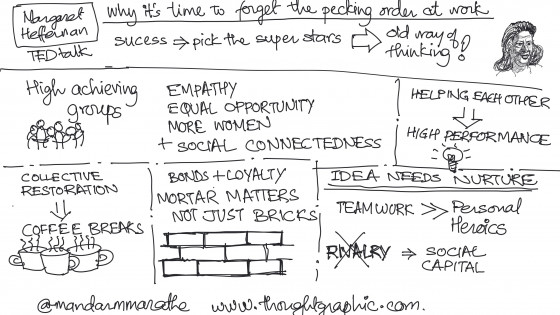 Margaret
Heffernan
TED talk
why it's time to forget the pecking order at work
sucess ⇒ pick the super stars ⇒ old way of
thinking?
High achieving
groups
EMPATHY
EQUAL OPPORTUNITY
MORE WOMEN
+ SOCIAL CONNECTEDNESS
HELPING EACH OTHER
HIGH PERFORMANCE
COLLECTIVE
RESTORATION
COFFEE BREAKS
BONDS + LOYALTY
MORTAR MATTERS
NOT JUST BRICKS
IDEA NEEDS NURTURE
TEAMWORK >> Personal
Heroics
RIVALRY → SOCIAL
CAPITAL
@mandarmmarathe www.thoughtgraphic.com.